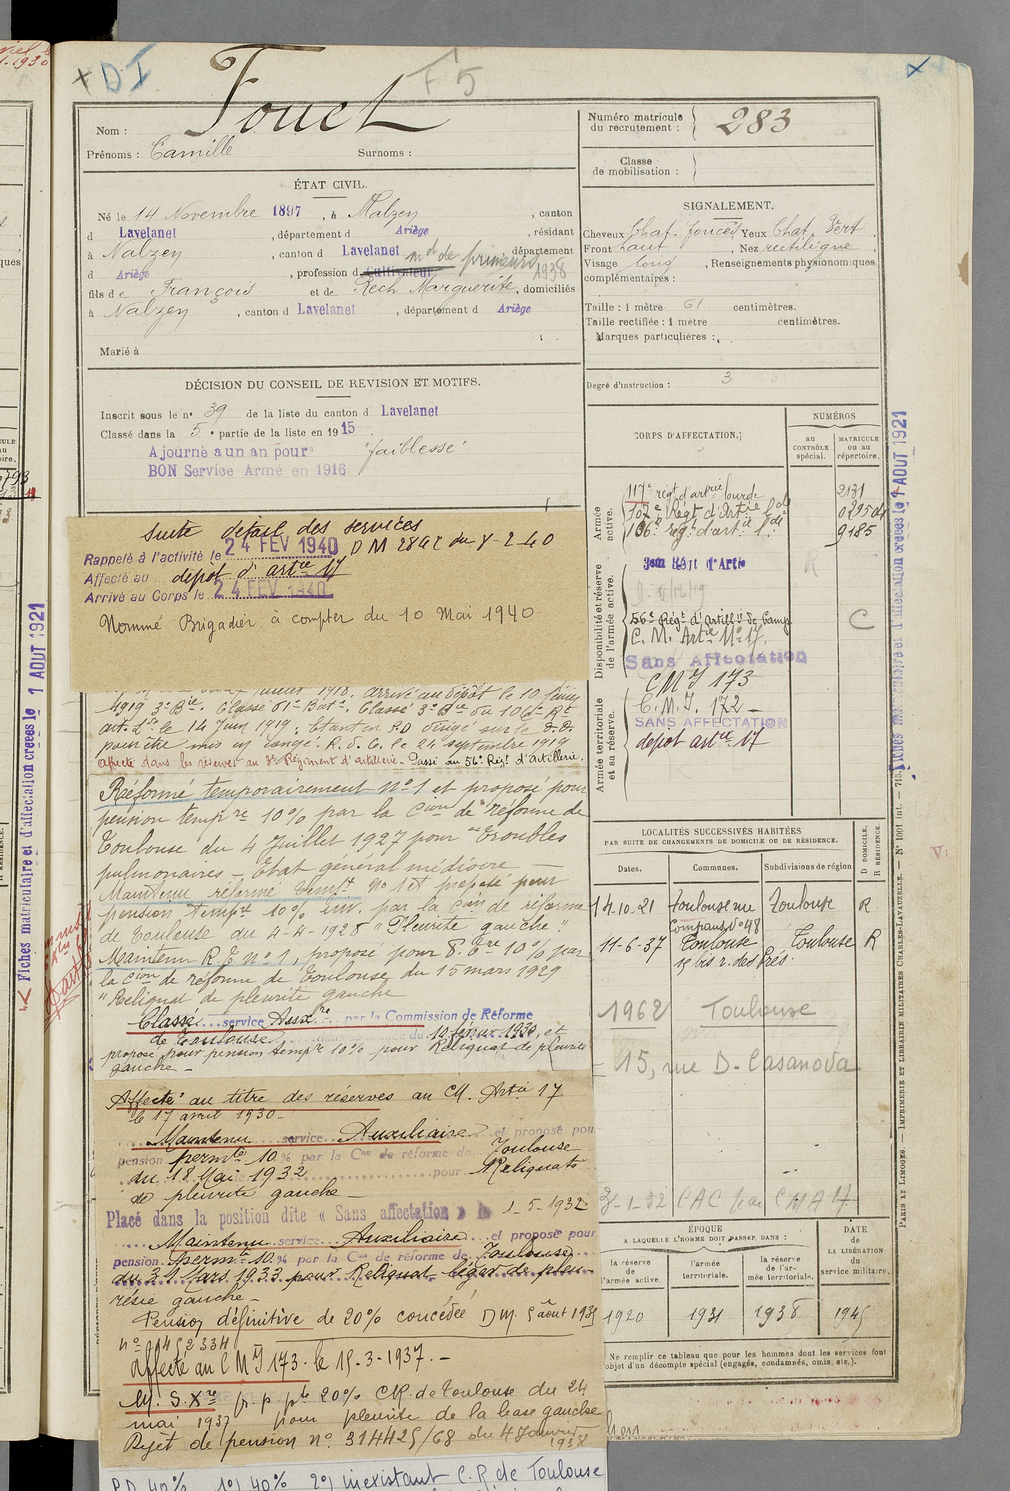 D I
F 5
Fouet
Nom :
Prénoms : Camille Surnoms :
Numéro matricule du recrutement : 283
Classe de mobilisation :
ÉTAT CIVIL.
Né le 14 Novembre 1897, à Nalzen, canton
d Lavelanet, département d Ariège, résidant
à Nalzen, canton d Lavelanet, département
d Ariège, profession d Cultivateur md de primeurs 1938
fils de François et de Rech Marguerite, domiciliés
à Nalzen, canton d Lavelanet, département d Ariège
Marié à
SIGNALEMENT.
Cheveux Chat. foncés Yeux Chat. Vert
Front haut, Nez rectiligne
Visage long, Renseignements physionomiques
complémentaires :
Taille : 1 mètre 61 centimètres.
Taille rectifiée : 1 mètre centimètres.
Marques particulières :
Degré d'instruction : 3
DÉCISION DU CONSEIL DE REVISION ET MOTIFS.
Inscrit sous le n° 39 de la liste du canton d Lavelanet
Classé dans la 5e partie de la liste en 1915
Ajourné a un an pour "faiblesse"
BON Service Armé en 1916
CORPS D'AFFECTATION.
NUMÉROS
AU CONTRÔLE spécial.
MATRICULE ou au répertoire.
Armée active.
117e régt d'artrie lourde 2131
307e Régt d'Artie Lde
106e Régt d'artie Lde 9185
Disponibilité et réserve de l'armée active.
R
56e Régt d'artill ie de Camp
C. M. Artie N° 17.
C
Sans Affectation
Armée territoriale et sa réserve.
C M I 173
C. M. I. 172 -
SANS AFFECTATION
dépôt artie 17
suite détail des services
Rappelé à l'activité le 24 FEV 1940 D M 2842 du 8-2-40
Affecté au dépôt d'artie 17
Arrivé au Corps le 24 FEV 1940
Nommé Brigadier à compter du 10 Mai 1940
1918. arrivé au dépôt le 10 Juin
1919 3e Bie. Classé 61e Batie. Classé 3e Bie du 106e Rt
art. Lde le 14 Juin 1919. Etant en S.D dirigé sur le
pour être mis en congé. R. D. C. le 24 septembre 1919
affecté dans les réserves au 3e Régiment d'artillerie. Passé au 56e Régt d'Artillerie.
Réformé temporairement n° 1 et proposé pour
pension tempre 10% par la Cion de réforme de
Toulouse du 4 Juillet 1927 pour "Troubles
pulmonaires - Etat général médiocre -
Maintenu réformé tempt n° 1 et proposé pour
pension tempre 10% inv. par la Cion de réforme
de Toulouse du 4-4-1928 "Pleurite gauche"
Maintenu R. T. n° 1, proposé pour P. Tre 10% par
la Cion de réforme de Toulouse du 15 mars 1929
"Reliquat de pleurite gauche
Classé service Auxre par la Commission de Réforme
de Toulouse du 10 février 1930, et
proposé pour pension tempre 10% pour Reliquat de pleurite
gauche -
Affecté au titre des réserves au CM. Artie 17
le 17 avril 1930 -
Maintenu service Auxiliaire et proposé pour
pension permte 10 % par la Con de réforme de Toulouse
du 18 Mai 1932 pour Reliquats
de pleurite gauche -
Placé dans la position dite « Sans affectation » le 1-5-1932
Maintenu service Auxiliaire et proposé pour
pension permte 10 % par la Con de réforme de Toulouse
du 31 Mars 1933 pour Reliquat léger de pleu-
résie gauche -
Pension définitive de 20% concédée D M. 5 août 1935
n° 0452334
Affecté au C M I 173. le 15-3-1937. -
M. S. Xre p. p. pte 20% CR. de Toulouse du 24
mai 1937 pour pleurite de la base gauche
Rejet de pension n° 314425/68 du 4 Janvier
1938
P.D 40% 1°) 40% 2°) inexistant C.R de Toulouse
LOCALITÉS SUCCESSIVES HABITÉES
PAR SUITE DE CHANGEMENTS DE DOMICILE OU DE RÉSIDENCE.
Dates. Communes. Subdivisions de région
D DOMICILE. R RÉSIDENCE.
14-10-21 Toulouse rue Compans N° 48 Toulouse R
11-6-37 Toulouse 15 bis r. des Prés. Toulouse R
1962 Toulouse
15, rue D. Casanova
ÉPOQUE
A LAQUELLE L'HOMME DOIT PASSER DANS :
la réserve de l'armée active. l'armée territoriale. la réserve de l'armée territoriale.
DATE DE LA LIBÉRATION du service militaire.
1920 1931 1938 1945
Ne remplir ce tableau que pour les hommes dont les services font
l'objet d'un décompte spécial (engagés, condamnés, omis, etc.).
Fiches matriculaire et d'affectation créées le 1 AOUT 1921
Fiches matriculaire et d'affectation créées le 1 AOUT 1921
PARIS ET LIMOGES. — IMPRIMERIE ET LIBRAIRIE MILITAIRES CHARLES-LAVAUZELLE. — N° 1001 Int. —